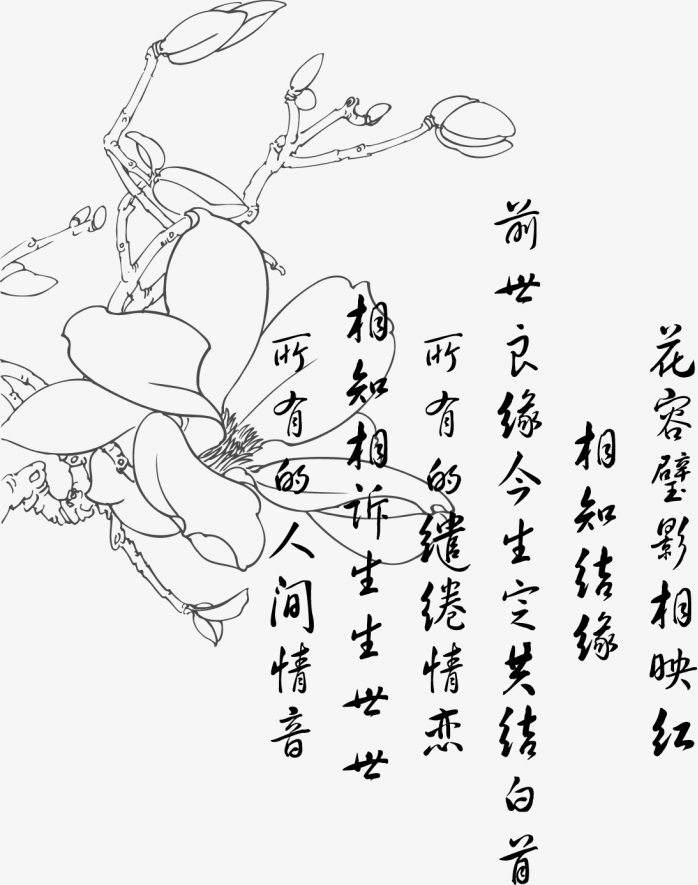 花容璧影相映红
相知结缘
前世良缘今生定共结白首
所有的缱绻情恋
相知相诉生生世世
所有的人间情音